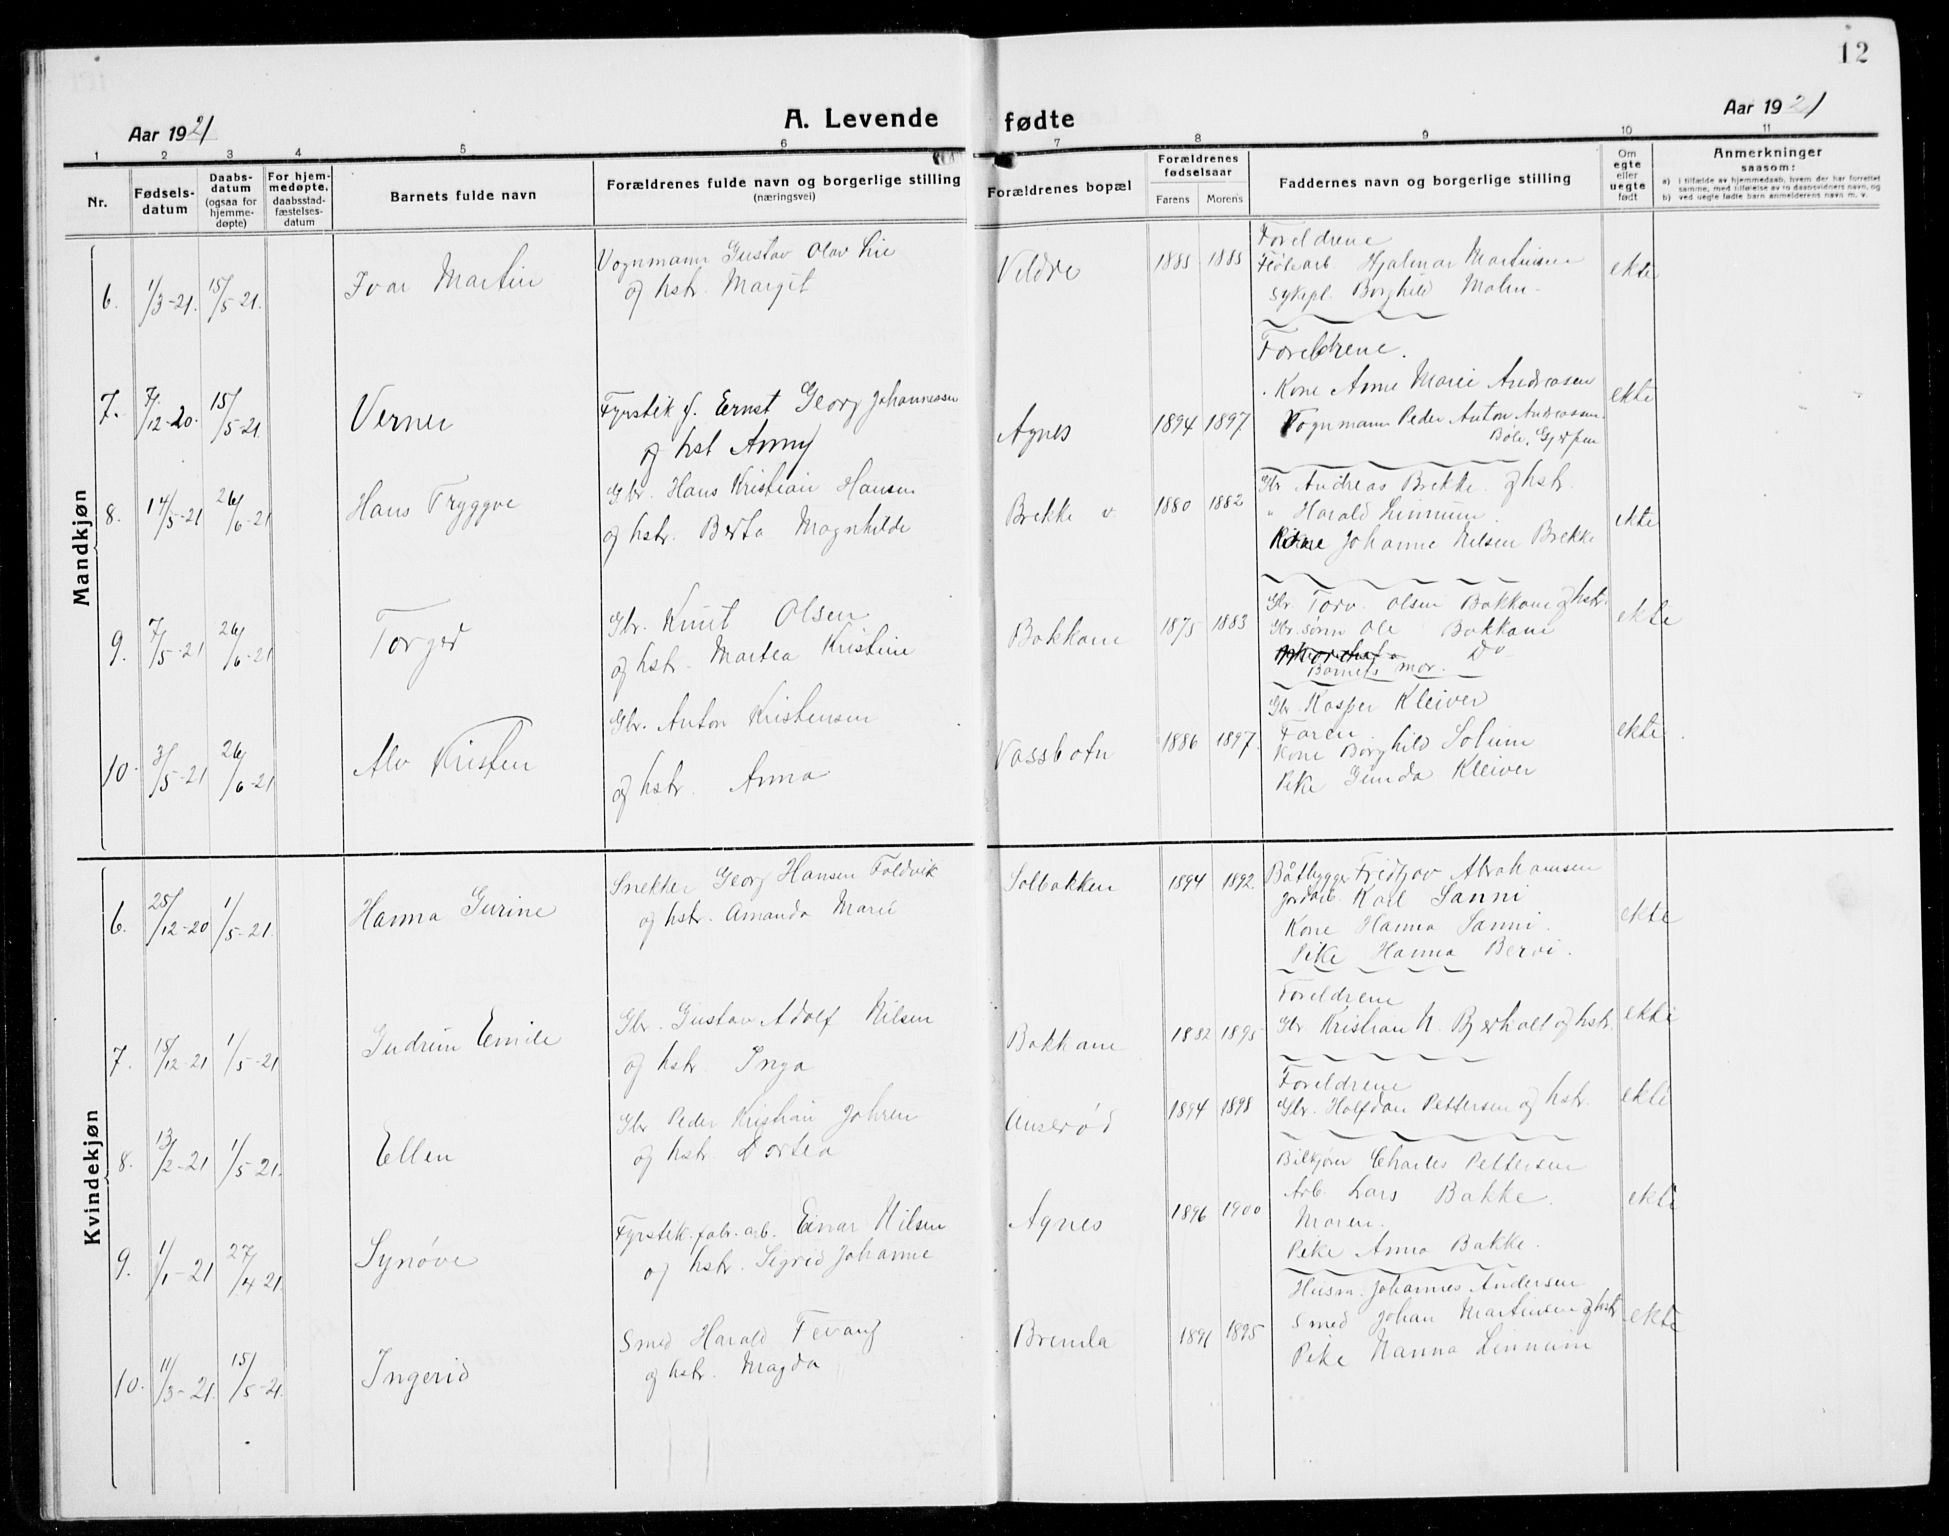 12
A. Levende fødte
Aar 1921
Aar 1921
1 2 3 4 5 6 7 8 9 10 11
Nr.
Fødsels-
datum
Daabs-
datum
(ogsaa for
hjemme-
døpte)
For hjem-
medøpte,
daabsstad-
fæstelses-
datum
Barnets fulde navn
Forældrenes fulde navn og borgerlige stilling
(næringsvei)
Forældrenes bopæl
Forældrenes
fødselsaar
Farens Morens
Faddernes navn og borgerlige stilling
Om
egte
eller
uegte
født
Anmerkninger
saasom:
a) i tilfælde av hjemmedaab, hvem der har forrettet
samme, med tilføielse av to daabsvidners navn, og
b) ved uegte fødte barn anmelderens navn m. v.
Mandkjøn
6. 1/3-21. 15/5-21. Ivar Martin
Vognmann Gustav Olav Lie
og hstr. Margit
Veldre 1885 1885
Foreldrene
Fløtearb. Hjalmar Martinsen
Sykepl. Borghild Malm
ekte
7. 7/12-20. 15/5-21. Verner
Fyrstik f. Ernst Georg Johannessen
og hst Anny
Agnes 1894 1897
Foreldrene.
Kone Anne Marie Andreasen
Vognmann Peder Anton Andreasen.
Bøle, Gjerpen
ekte
8. 14/5-21 26/6-21 Hans Tryggve
Gbr. Hans Kristian Hansen
og hstr. Berta Magnhilde
Brekke v 1880 1882
Gbr Andreas Brekke og hstr.
" Harald Linnum.
Kone Johanne Nilsen Brekke
ekte
9. 7/5-21 26/6-21 Torger
Gbr. Knut Olsen
og hstr. Martea Kristine
Bakkane 1875 1883
Gbr Torv. Olsen Bakkane og hstr.
Gbr.sønn Ole Bakkane
Do
Barnets mor.
ekte
10. 3/5-21 26/6-21 Alv Kristen
Gbr. Anton Kristensen
og hstr. Anna
Vassbotn 1886 1897.
Gbr Kasper Kleiver
Faren.
Kone Borghild Solum
Pike Gunda Kleiver
ekte
Kvindekjøn
6. 25/12-20 1/5-21. Hanna Gurine
Snekker Georg Hansen Foldvik
og hstr. Amanda Marie
Solbakken 1894 1892.
Båtbygger Fridtjov Abrahamsen
Jordarb. Karl Sanni
Kone Hanna Sanni.
Pike Hanna Bervi.
ekte
7. 15/12-21 1/5-21 Gudrun Emilie
Gbr. Gustav Adolf Nilsen
og hstr. Inga
Bakkane 1882 1895
Foreldrene
Gbr Kristian N. Bjerholt og hstr.
ekte
8. 13/2-21 1/5-21. Ellen
Gbr Peder Kristian Johren
og hstr. Dortea
Auserød 1894 1898
Foreldrene
Gbr. Halfdan Pettersen og hstr.
ekte
9. 1/1-21 27/4-21. Synøve
Fyrstik.fabr.arb. Einar Nilsen
og hstr. Sigrid Johanne
Agnes 1896 1900
Bilkjører Charles Pettersen
Arb. Lars Bakke.
Moren.
Pike Anna Bakke.
ekte
10. 11/3-21. 15/5-21. Ingerid
Smed Harald Fevang
og hstr. Magda
Brenla 1891 1895
Husm. Johannes Andersen
Smed Johan Martinsen og hstr
Pike Nanna Linnum
ekte